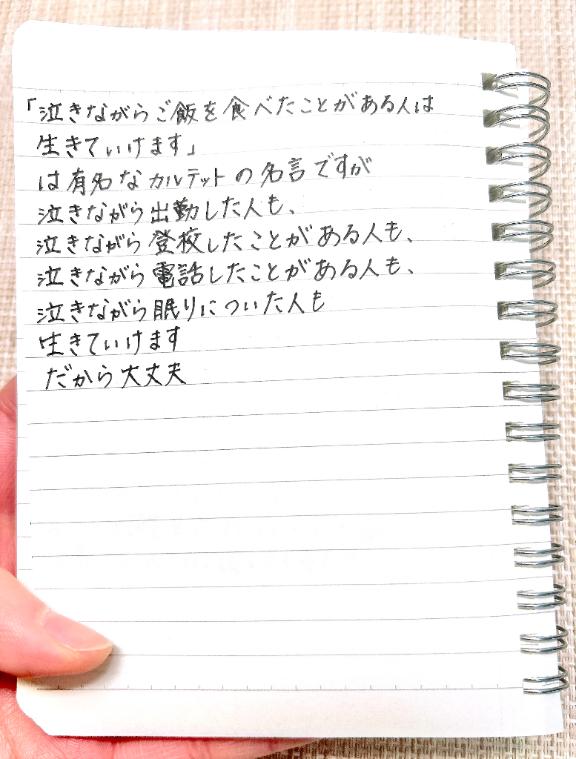 「泣きながらご飯を食べたことがある人は
生きていけます」
は有名なカルテットの名言ですが
泣きながら出勤した人も、
泣きながら登校したことがある人も、
泣きながら電話したことがある人も、
泣きながら眠りについた人も
生きていけます
だから大丈夫